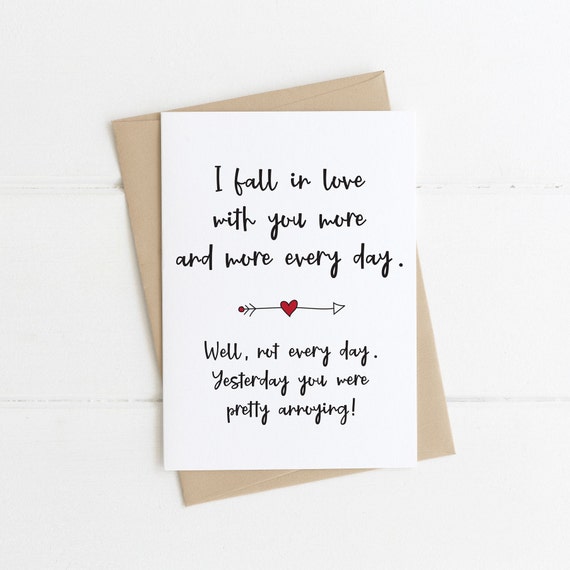 I fall in love
with you more
and more every day.
Well, not every day.
Yesterday you were
pretty annoying!